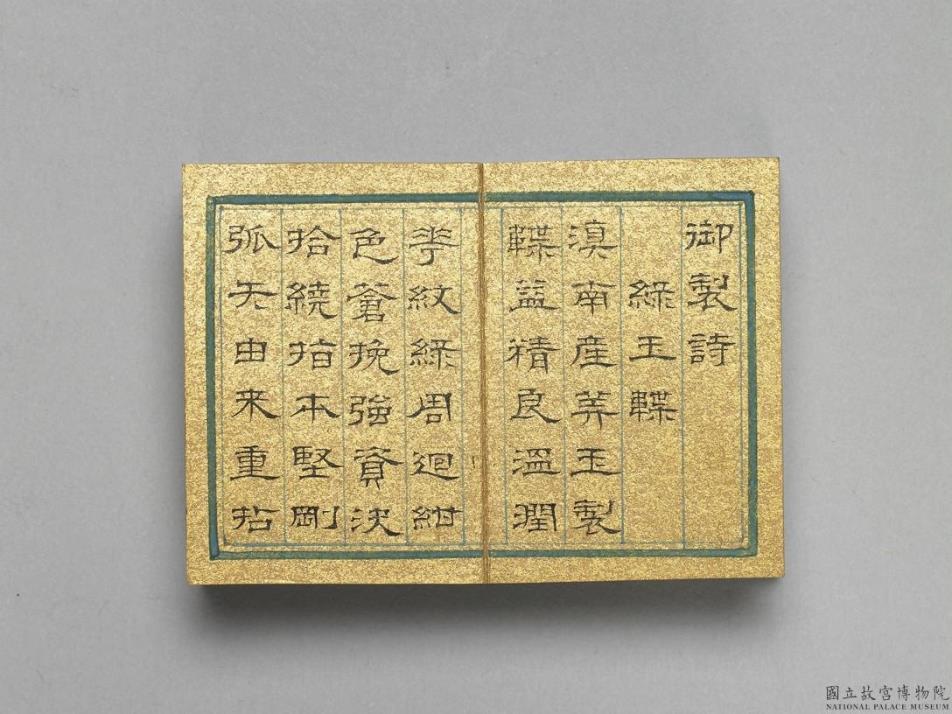 御製詩
綠玉韘
滇南産美玉製
韘益精良溫潤
華紋綠周迴紺
色蒼挽強資決
拾繞指本堅剛
弧矢由来重拈
國立故宮博物院
NATIONAL PALACE MUSEUM